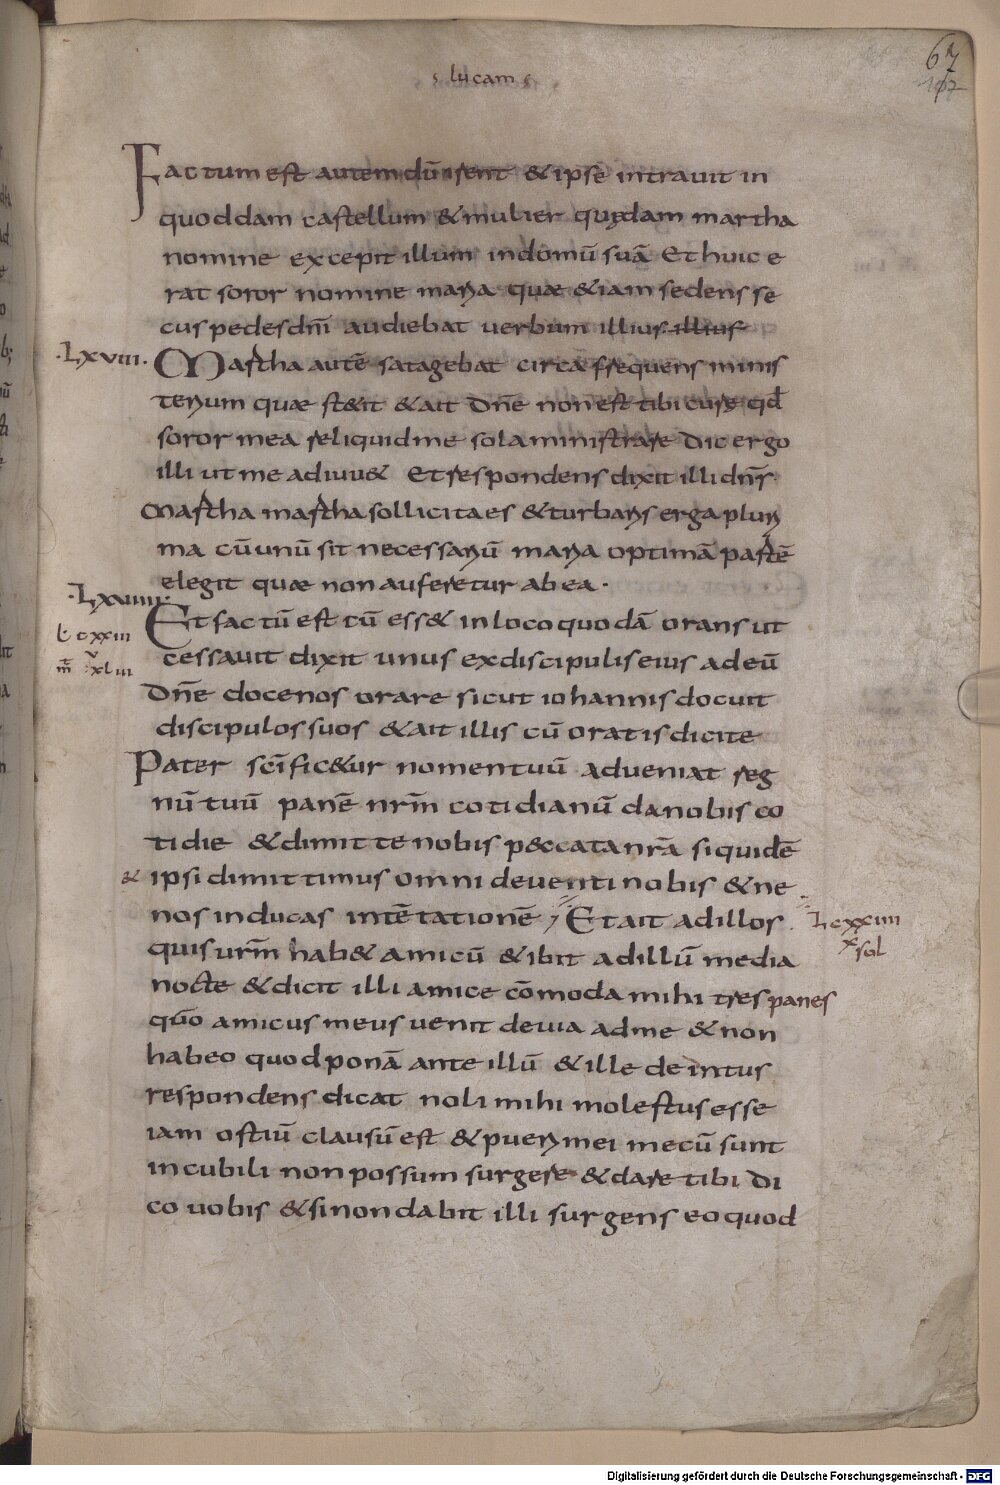 lucam
67
107
Factum est autem dū irent & ipse intrauit in
quoddam castellum & mulier quędam martha
nomine excepit illum indomū suā Et huic e
rat soror nomine maria quæ &iam sedens se
cus pedes dn̄i audiebat uerbum illius illius
·Lxviii· Martha autē satagebat circa frequens minis
terium quæ st&it & ait dn̄e non est tibi curę qd̄
soror mea reliquid me sola ministrare dic ergo
illi ut me adiuu& Et respondens dixit illi dn̄s
martha martha sollicita es & turbaris erga pluri
ma cū unū sit necessariū maria optimā partē
elegit quæ non auferetur ab ea·
·Lxviiii· Et factū est cū ess& in loco quodā orans ut
L cxxiii
cessauit dixit unus ex discipulis eius ad eū
m̄ xliii
Dn̄e doce nos orare sicut iohannis docuit
discipulos suos & ait illis cū oratis dicite
Pater sc̄ific&ur nomen tuū adueniat reg
nū tuū panē nr̄m cotidianū da nobis co
tidie & dimitte nobis p&cata nr̄a siquidē
& ipsi dimittimus omni deuenti nobis & ne
nos inducas intētationē Et ait ad illos Lcxxiiii
x sol
quis urm̄ hab& amicū & ibit ad illū media
nocte & dicit illi amice cōmoda mihi tres panes
qūo amicus meus uenit de uia ad me & non
habeo quod ponā ante illū & ille de intus
respondens dicat noli mihi molestus esse
iam ostiū clausū est & pueri mei mecū sunt
in cubili non possum surgere & dare tibi di
co uobis & si non dabit illi surgens eo quod
Digitalisierung gefördert durch die Deutsche Forschungsgemeinschaft - DFG